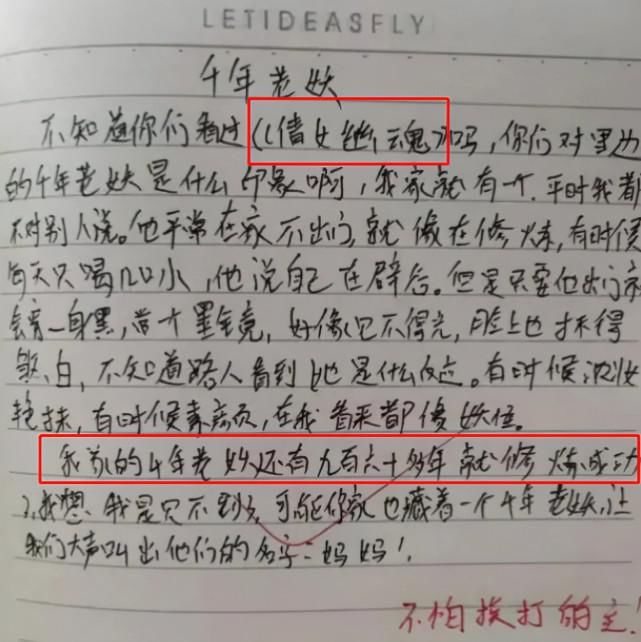 LETIDEASFLY
千年老妖
不知道你们看过《《倩女幽魂》吗，你们对里边
的千年老妖是什么印象啊，我家就有一个.平时我都
不对别人说。他平常在家不出门，就像在修炼，有时候
每天只喝几口水，他说自己在辟谷。但是只要他出门就
会穿一身黑，带个墨镜，好像见不得光，脸上也抹得
煞白，不知道路人看到她是什么反应。有时候浓妆
艳抹，有时候素颜，在我看来都像妖怪。
我家的千年老妖还有九百六十多年就修炼成功
了，我想，我是见不到了，可能你家也藏着一个千年老妖，让
我们大声叫出他们的名字：妈妈！
不怕挨打的主！